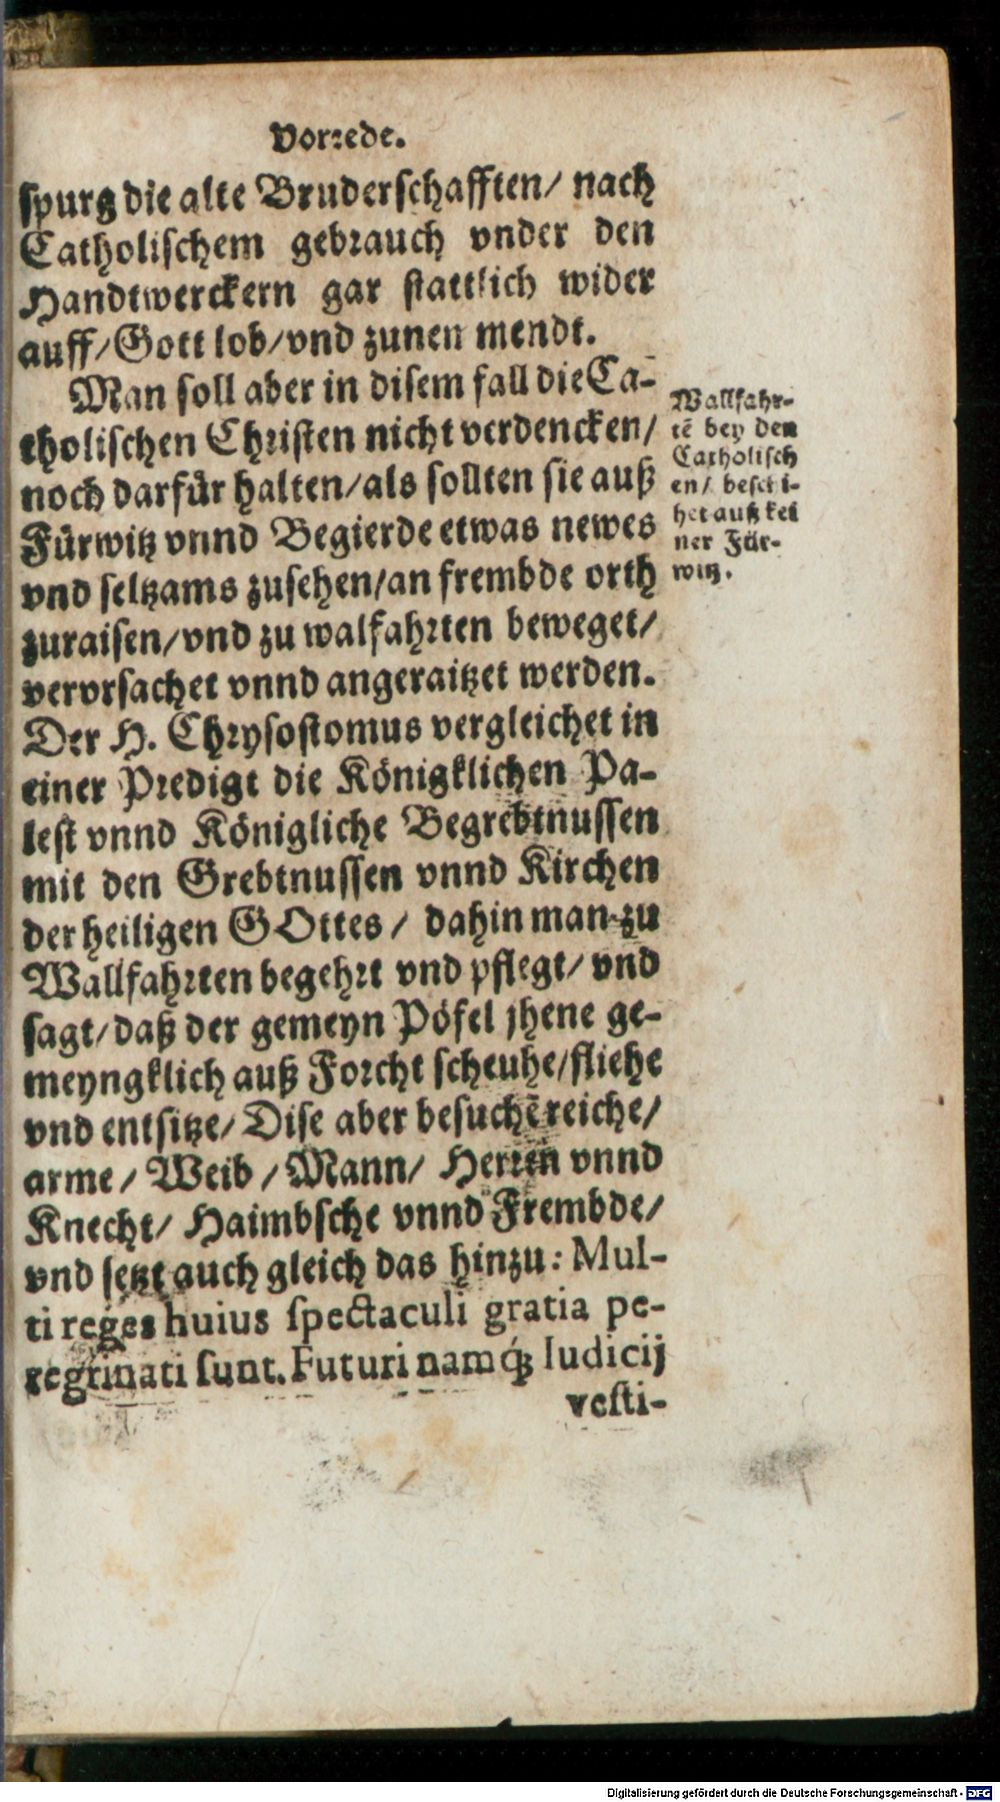 Vorrede.
spurg die alte Bruderschafften/ nach
Catholischem gebrauch vnder den
Handtwerckern gar stattlich wider
auff/Gott lob/vnd zunen mendt.
Man soll aber in disem fall die Ca-
tholischen Christen nicht verdencken/
noch darfür halten/als sollten sie auß
Fürwitz vnnd Begierde etwas newes
vnd seltzams zusehen/an frembde orth
zuraisen/vnd zu walfahrten beweget/
vervrsachet vnnd angeraitzet werden.
Der H. Chrysostomus vergleichet in
einer Predigt die Königklichen Pa-
lest vnnd Königliche Begrebtnussen
mit den Grebtnussen vnnd Kirchen
der heiligen GOttes/ dahin man zu
Wallfahrten begehrt vnd pflegt/ vnd
sagt/daß der gemeyn Pöfel jhene ge-
meyngklich auß Forcht scheuhe/fliehe
vnd entsitze/ Dise aber besuchē reiche/
arme/ Weib/ Mann/ Herren vnnd
Knecht/ Haimbsche vnnd Frembde/
vnd setzt auch gleich das hinzu: Mul-
ti reges huius spectaculi gratia pe-
regrinati sunt. Futuri namq́; Iudicij
vesti-
Wallfahr-
tē bey den
Catholisch
en/ beschi-
het auß kei
ner Für-
witz.
Digitalisierung gefördert durch die Deutsche Forschungsgemeinschaft - DFG